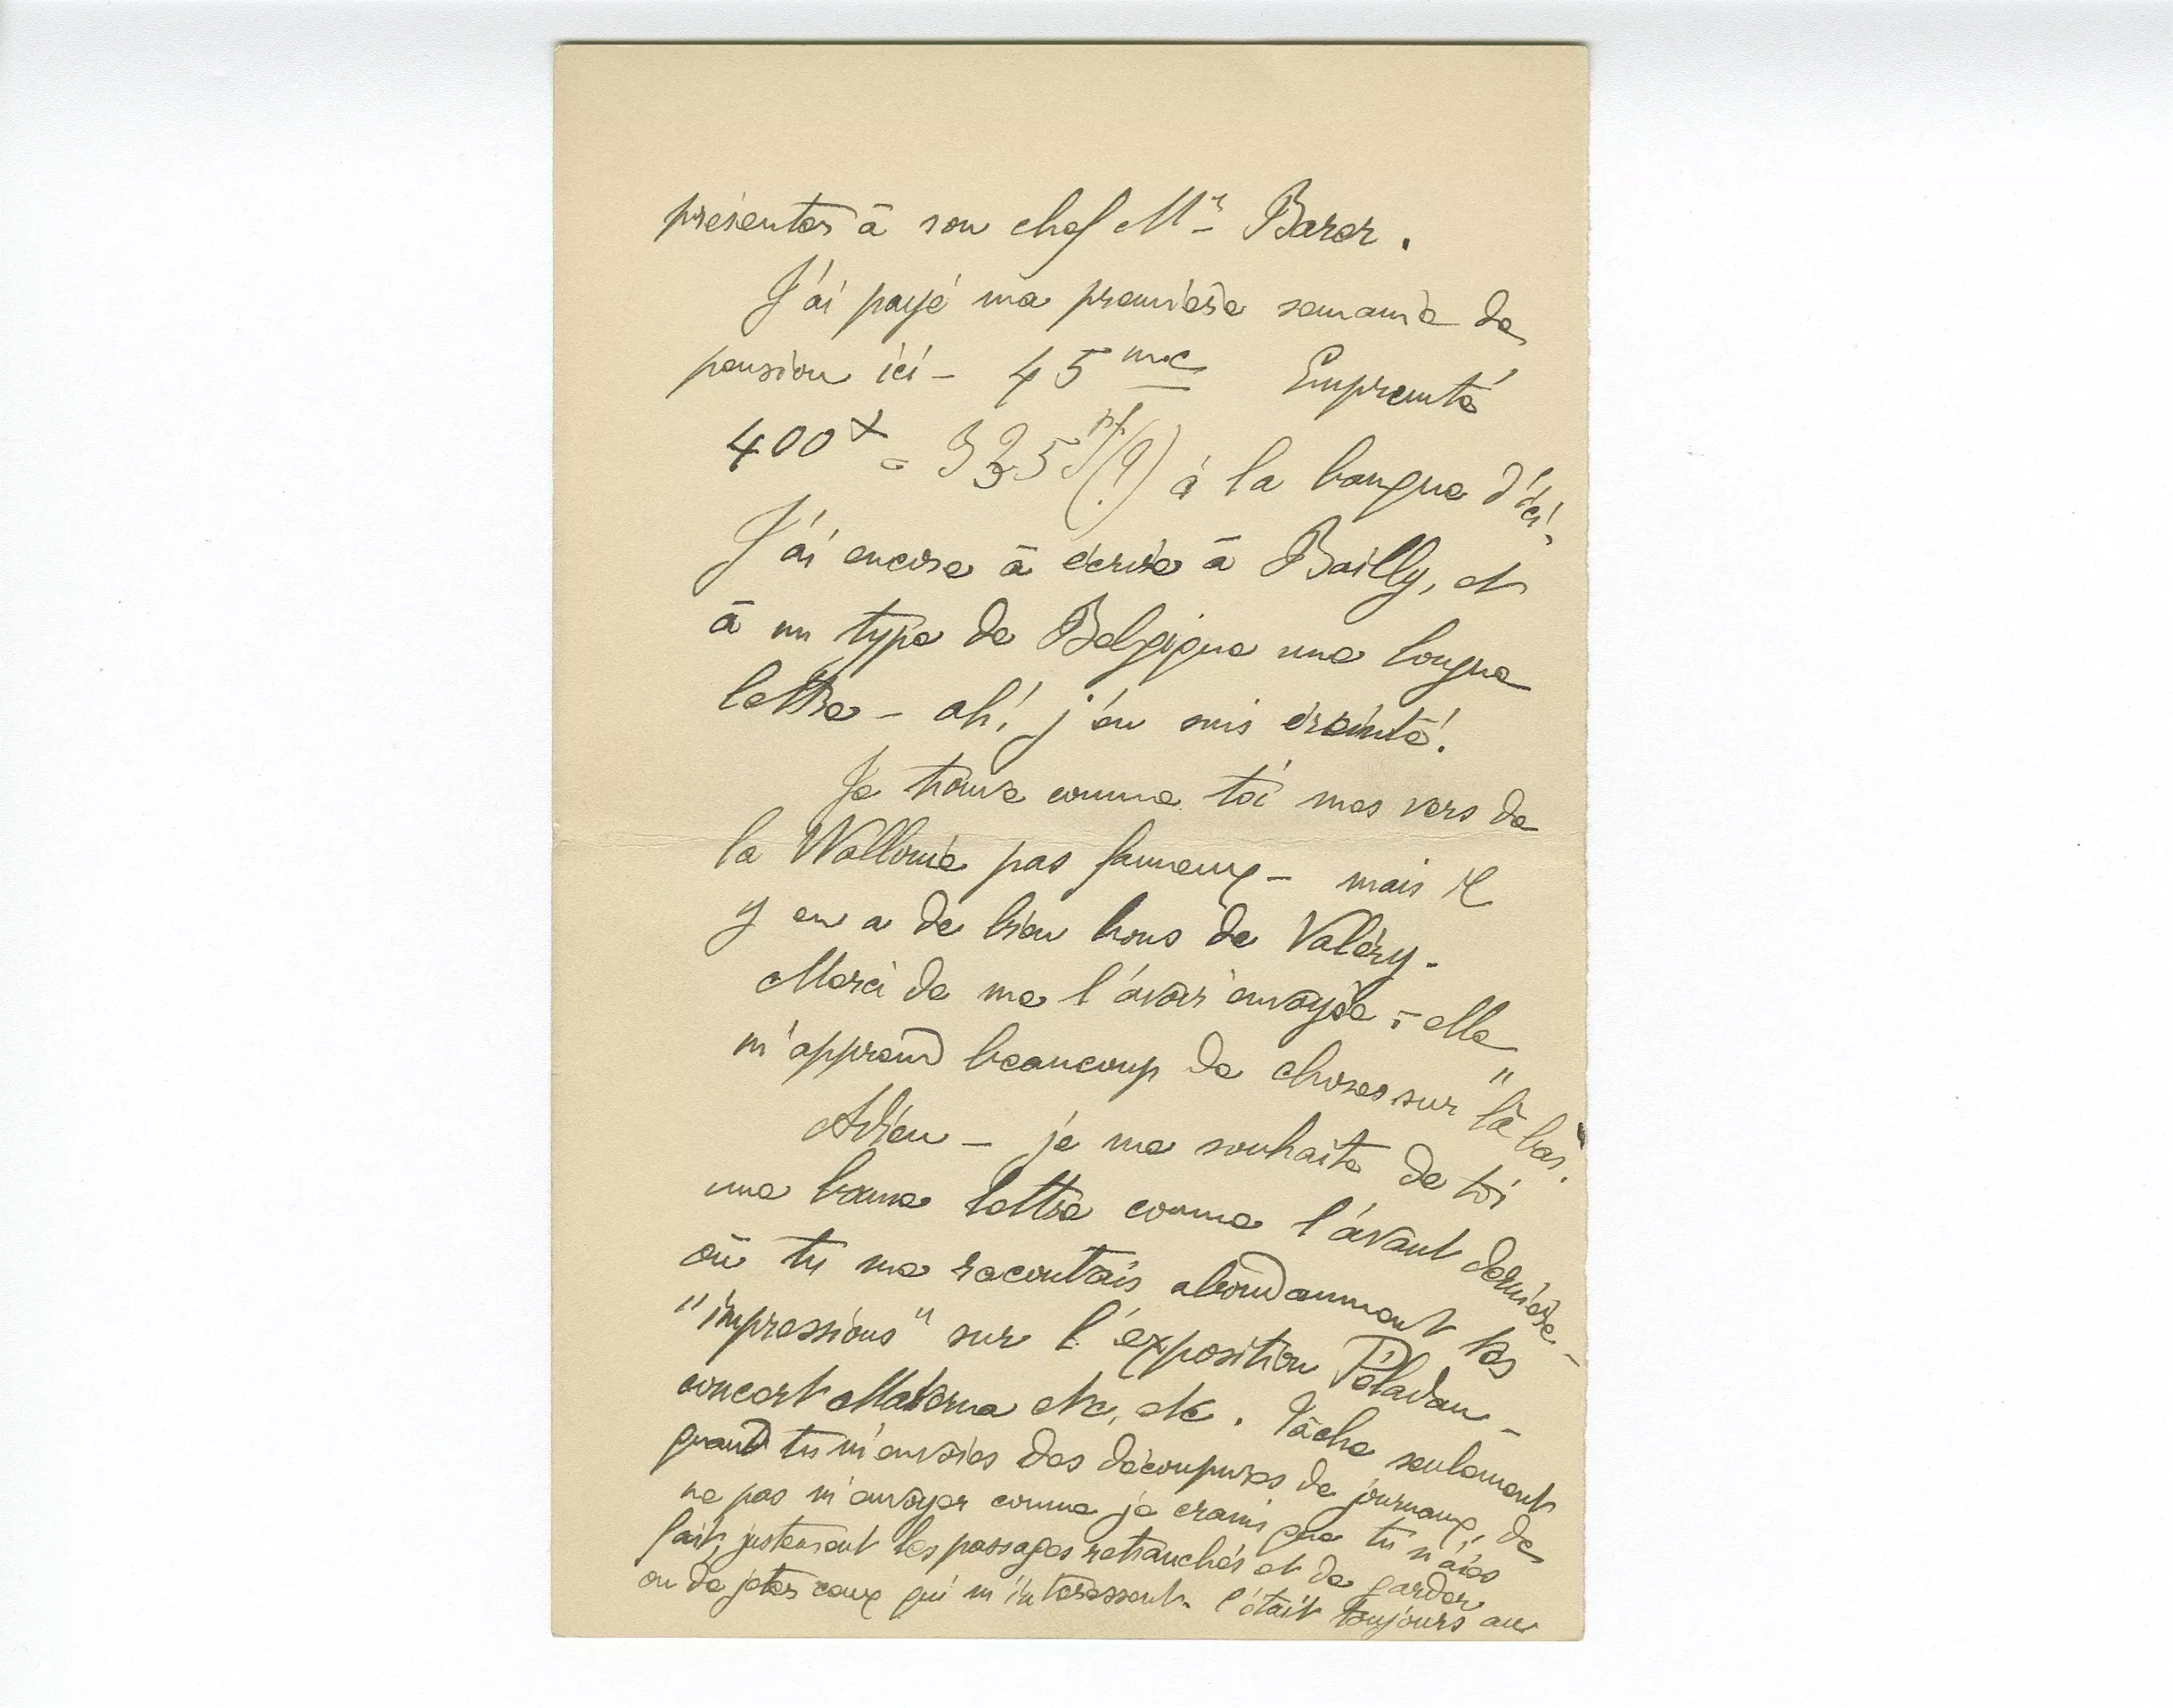 présenter à son chef Mr Barer.
J'ai payé ma première semaine de
pension ici – 45 mc Emprunté
400 = 325 pf (?) à la banque d'ici.
J'ai encore à écrire à Bailly, et
à un type de Belgique une longue
lettre – ah! j'en suis éreinté!
Je trouve comme toi mes vers de
la Wallonie pas fameux – mais il
y en a de bien bons de Valéry.
Merci de me l'avoir envoyée, – elle
m'apprend beaucoup de choses sur "là bas.
Adieu – je me souhaite de toi
une bonne lettre comme l'avant dernière –
où tu me racontais abondamment tes
"impressions" sur l'exposition Péladan –
concert Materna etc, etc. Tâche seulement
quand tu m'envoies des découpures de journaux, de
ne pas m'envoyer comme je crains que tu n'aies
fait, justement les passages retranchés et de garder
ou de jeter ceux qui m'intéressent. C'était toujours au